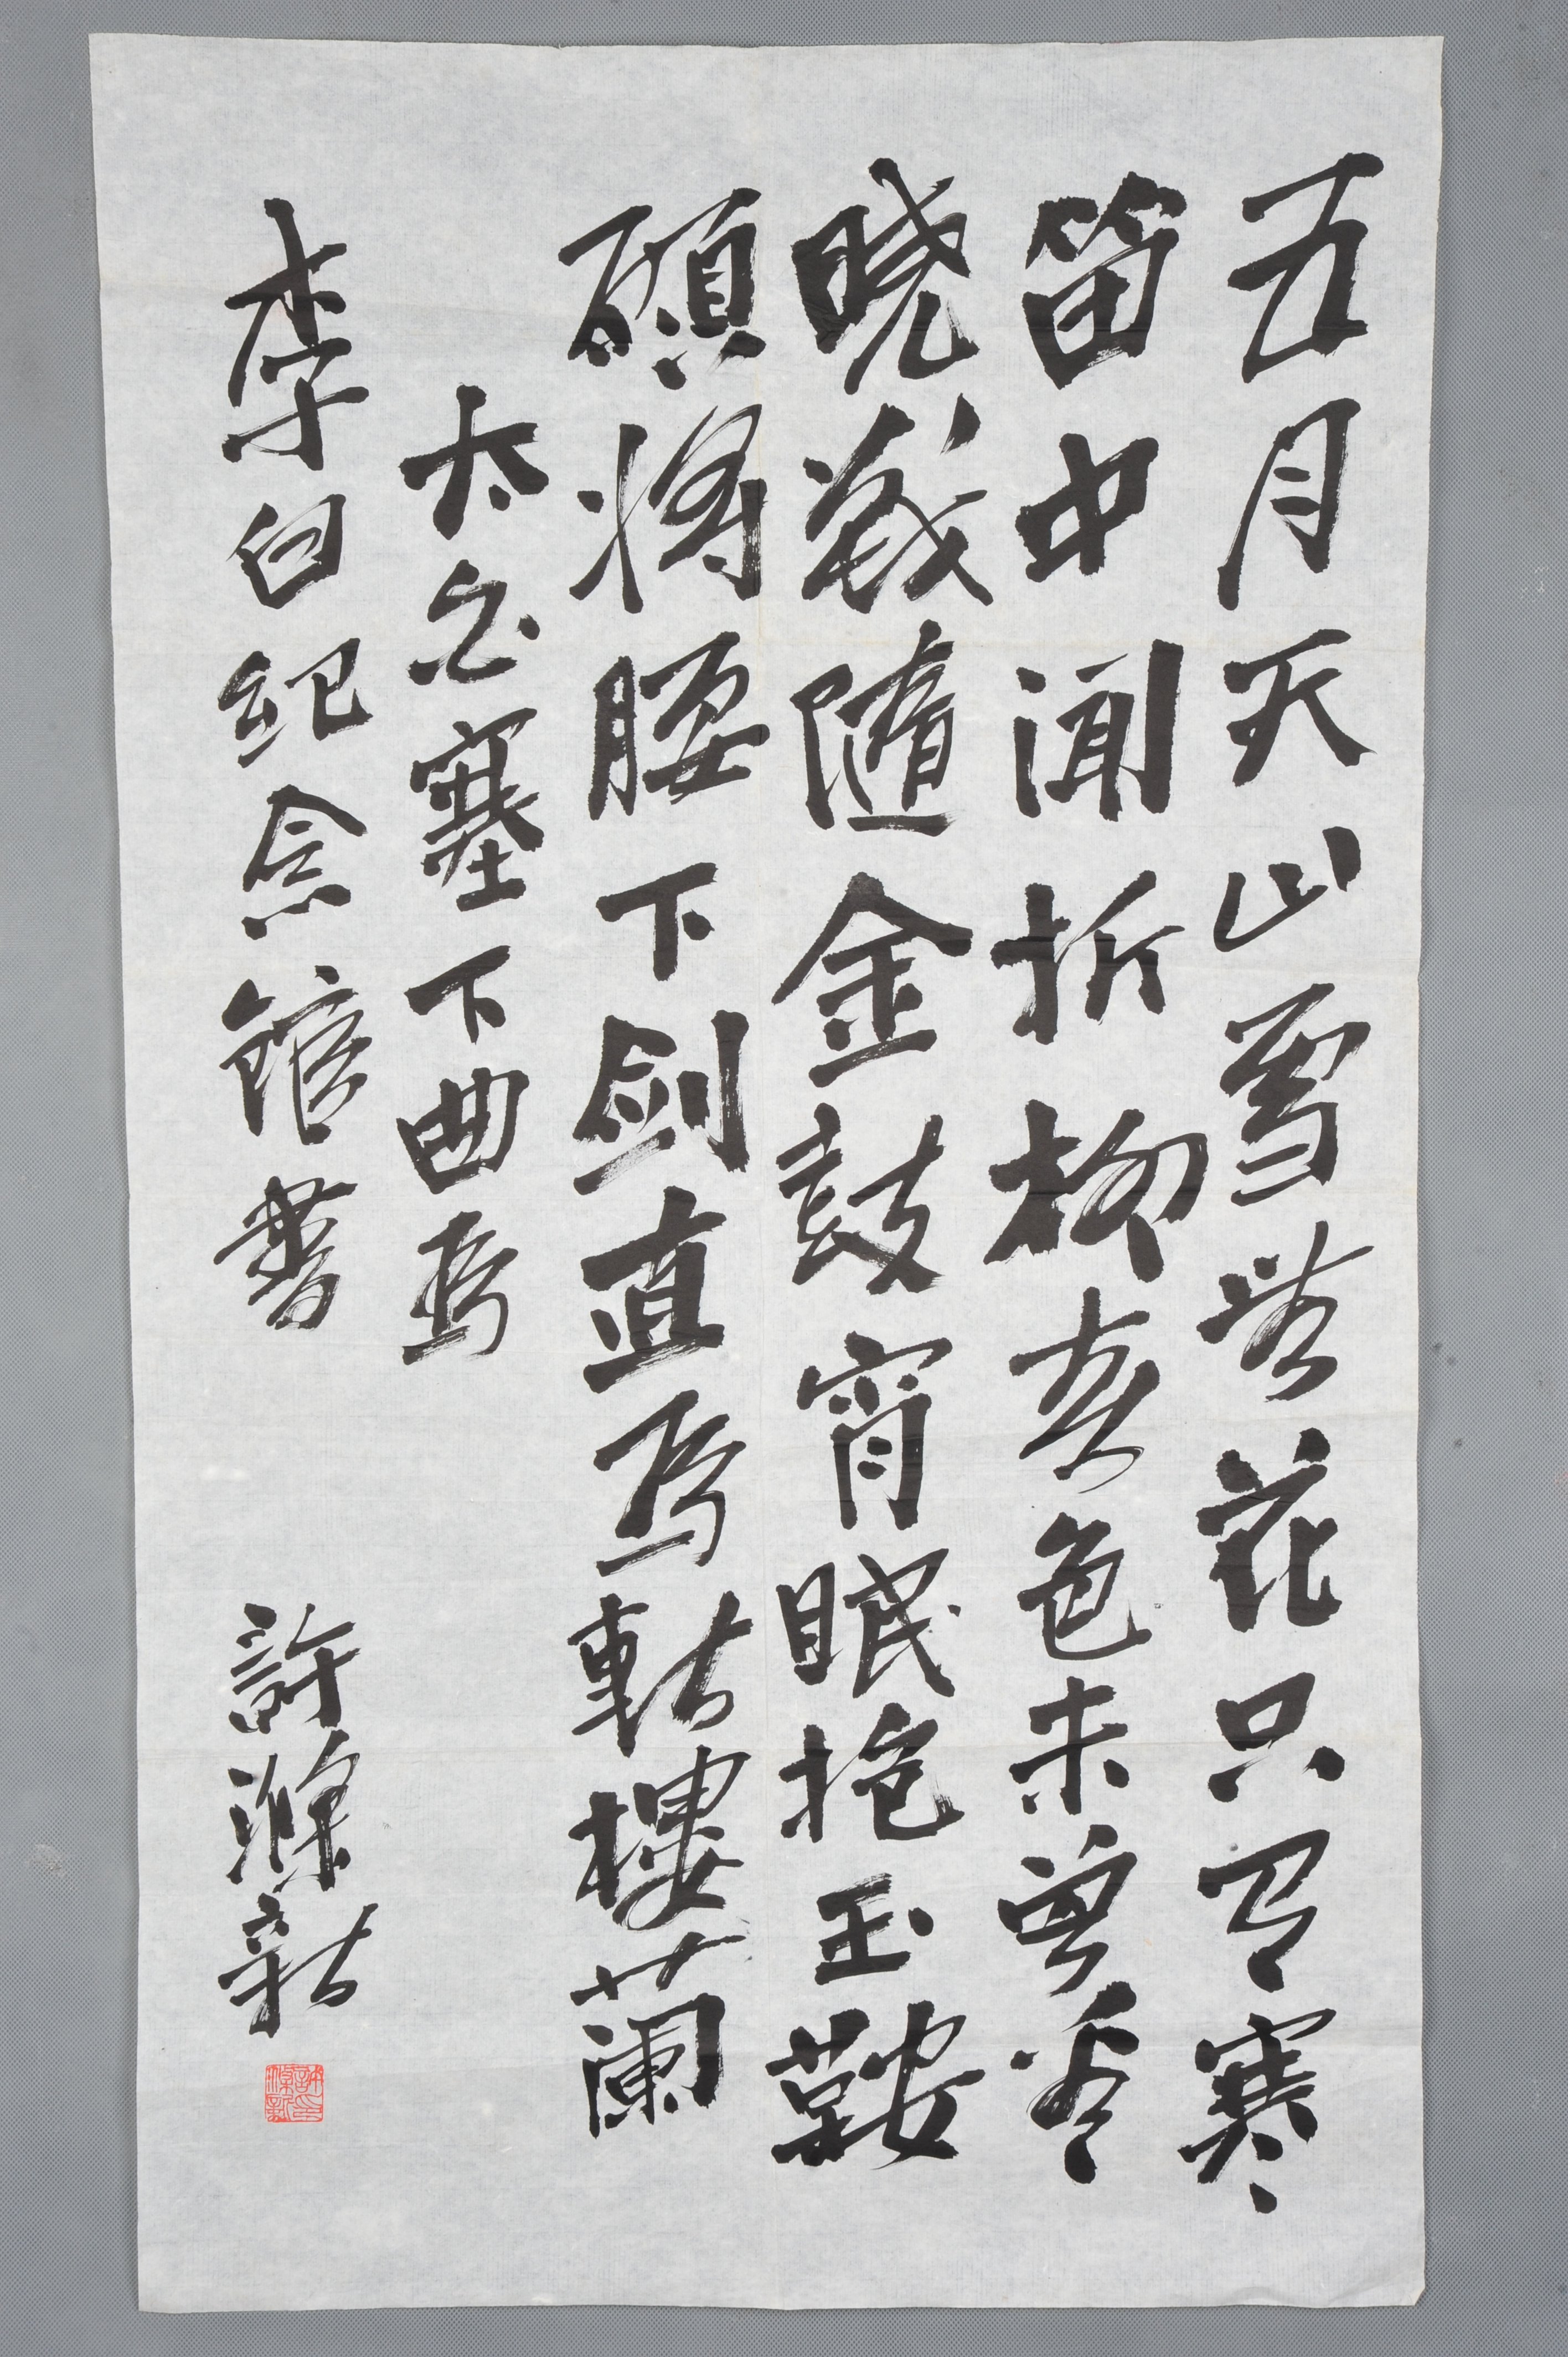 五月天山雪無花只有寒
笛中聞折柳春色未曾看
晓戰隨金鼓宵眠抱玉鞍
願將腰下劍直為斬樓蘭
太白塞下曲為
李白紀念館書 許滌新
許滌新印